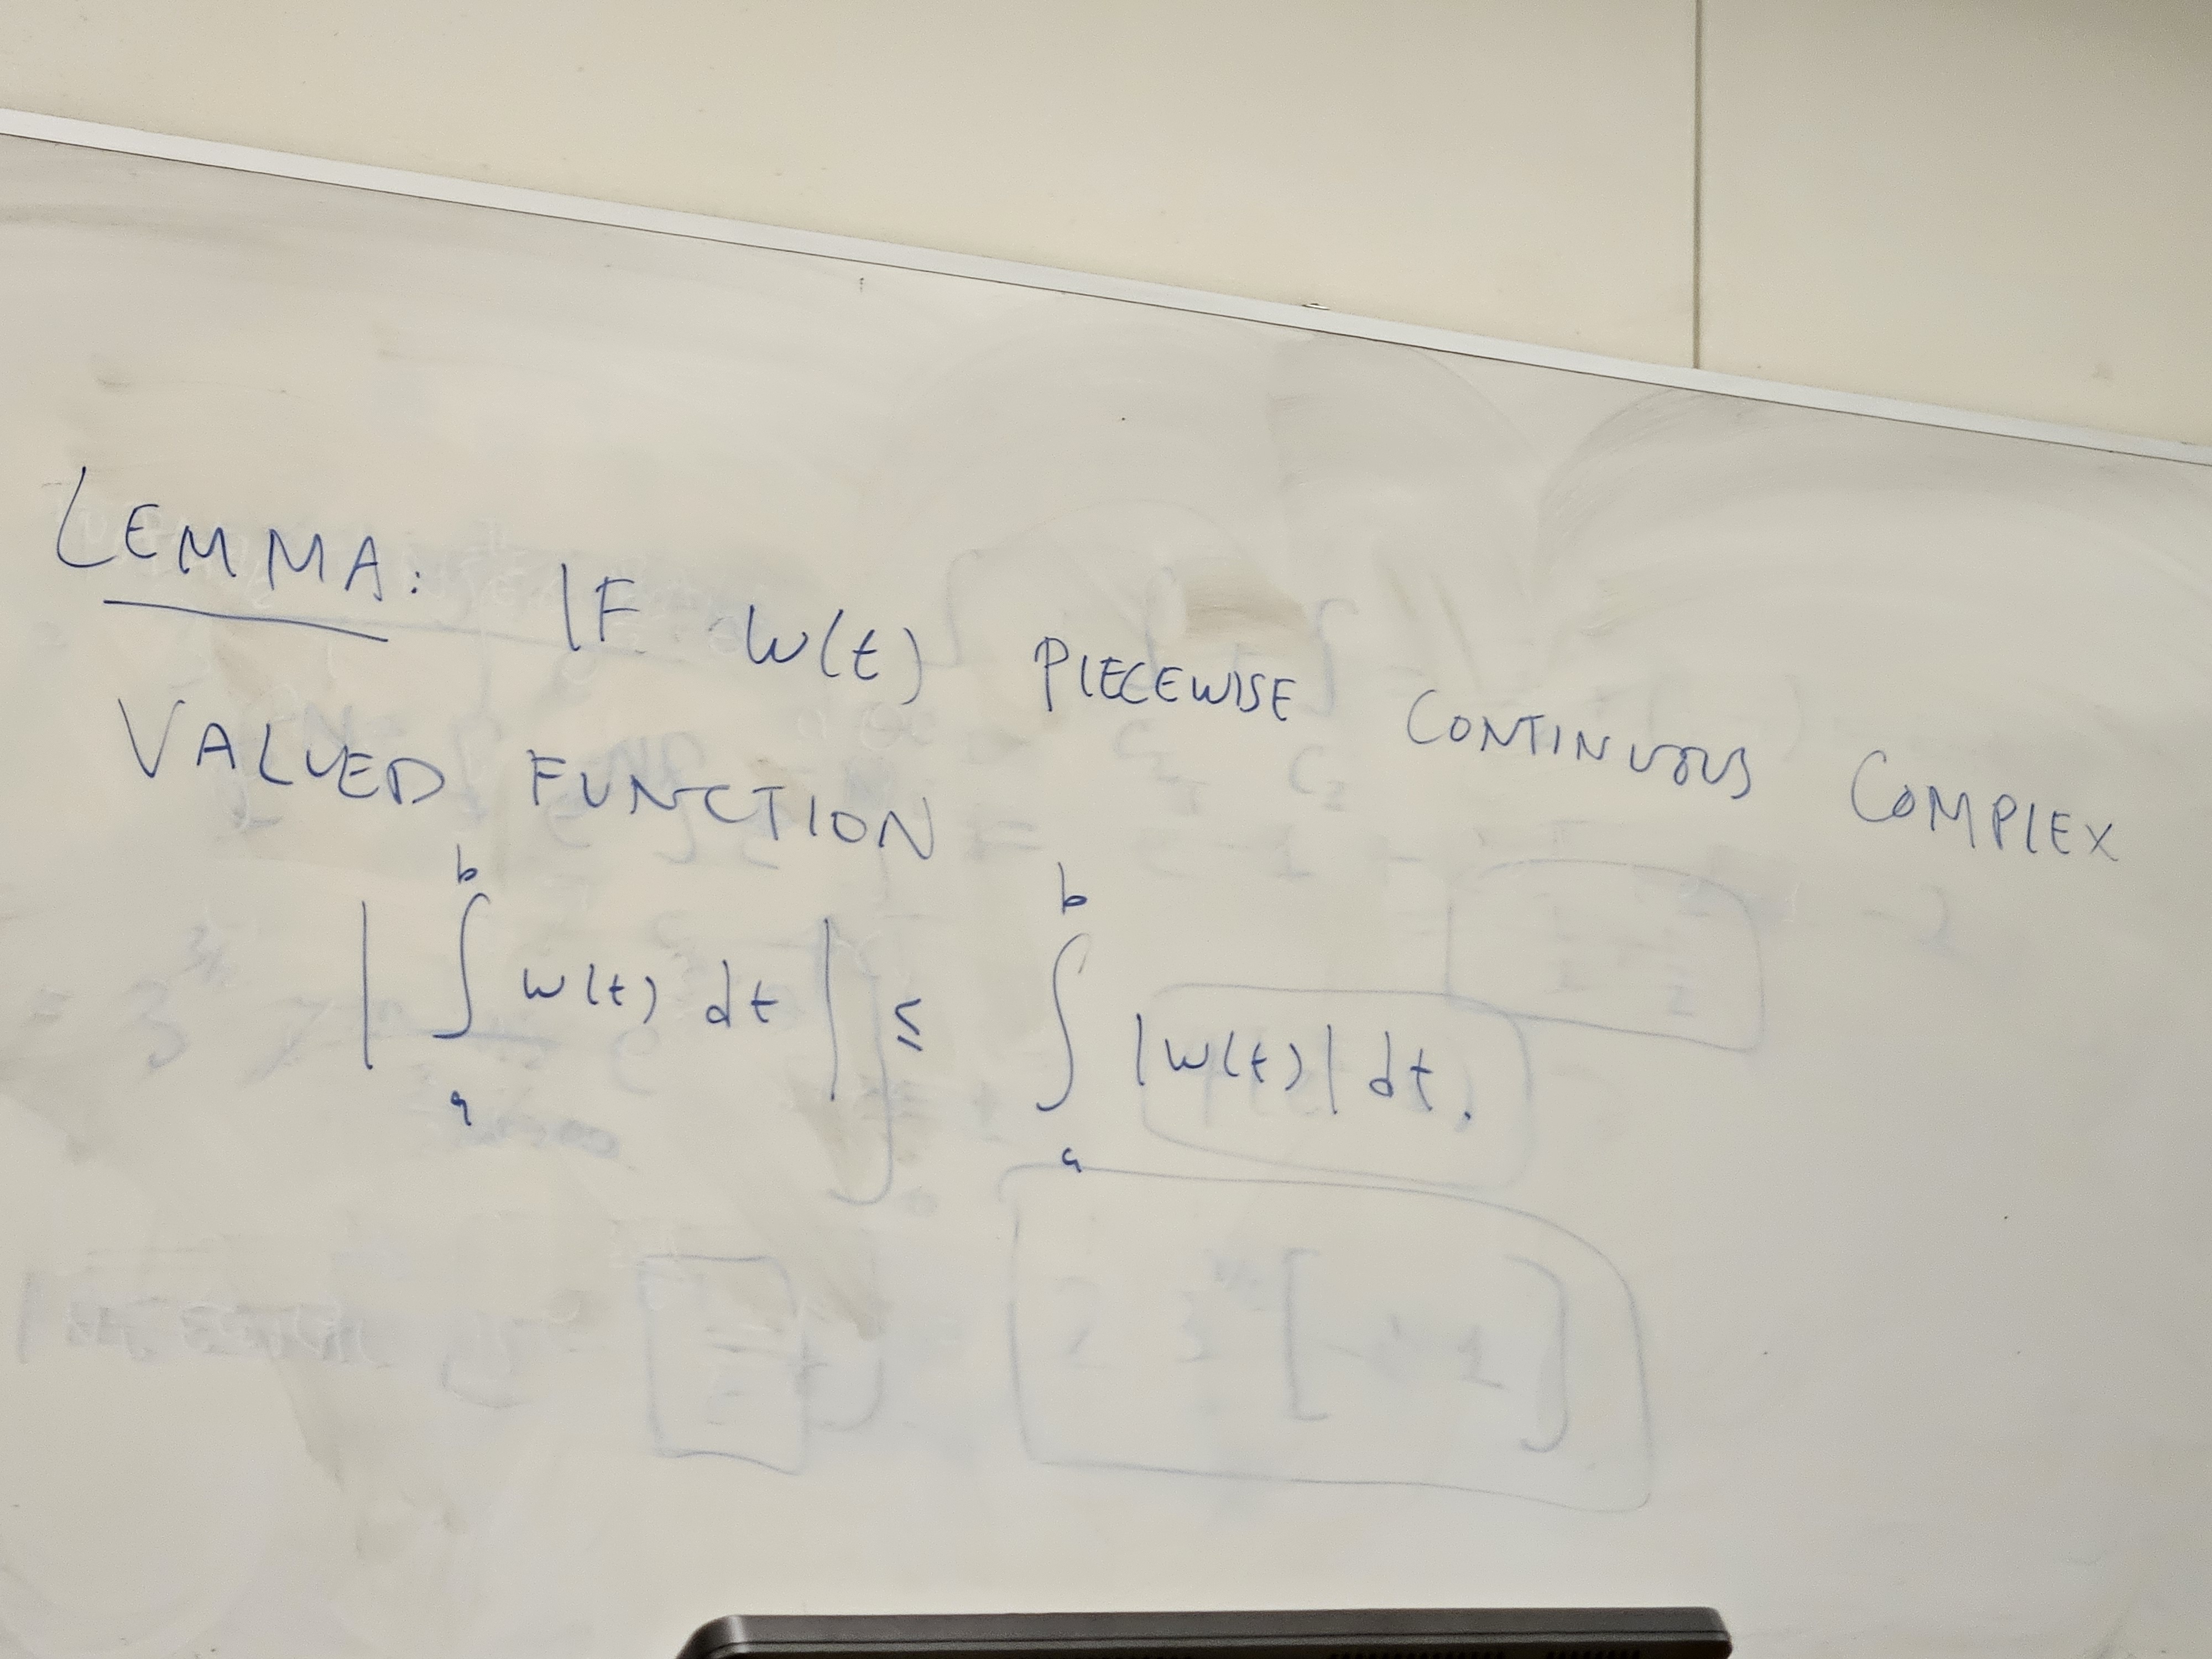 LEMMA: IF W(t) PIECEWISE CONTINUOUS COMPLEX
VALUED FUNCTION
| ∫_a^b w(t) dt | ≤ ∫_a^b |w(t)| dt.